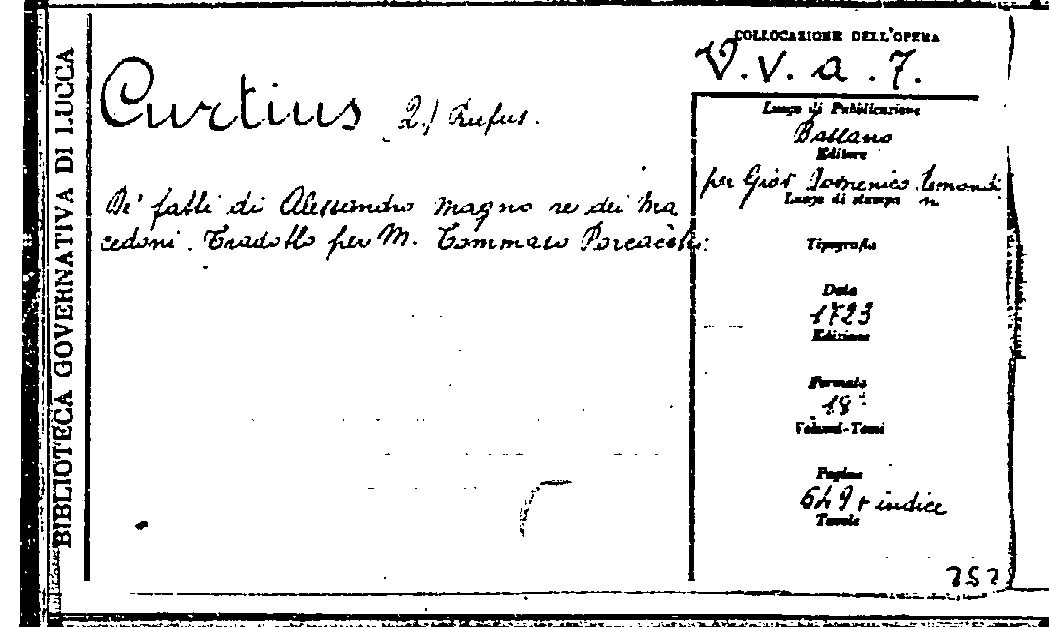 BIBLIOTECA GOVERNATIVA DI LUCCA
Curtius Q.) Rufus.
De' fatti di Alessandro magno re dei Ma
cedoni. Tradotto per M. Tommaso Porcacchi:
COLLOCAZIONE DELL'OPERA
V.V. a. 7.
Luogo di Pubblicazione
Bassano
Editore
per Giov Domenico
Luogo di stampa
Tipografia
Data
1723
Edizione
Formato
18°
Volumi-Tomi
Pagine
649 + indice
Tavole